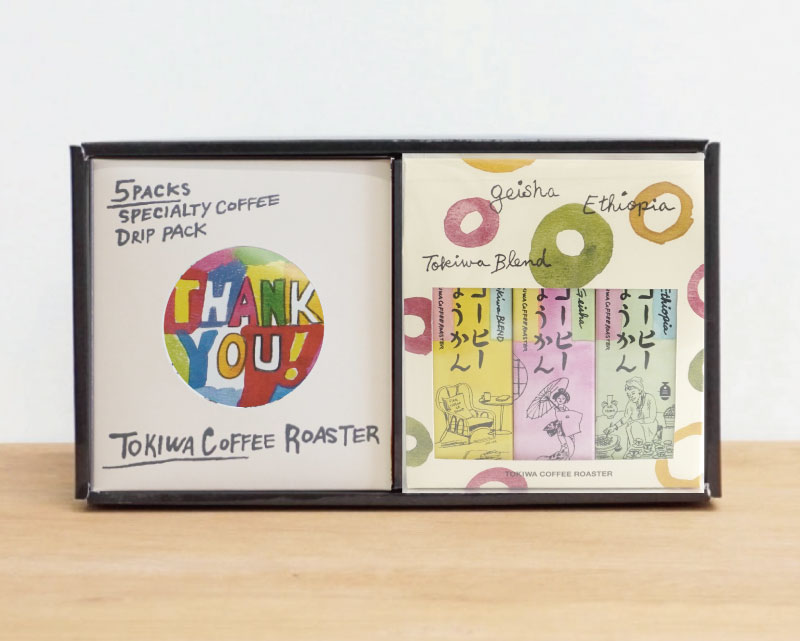 5PACKS
SPECIALTY COFFEE
DRIP PACK
THANK
YOU!
TOKIWA COFFEE ROASTER
geisha
Ethiopia
Tokiwa Blend
コーヒー
ようかん
TOKIWA COFFEE ROASTER
kiwa BLEND
コーヒー
ようかん
TOKIWA COFFEE ROASTER
Geisha
コーヒー
ようかん
TOKIWA COFFEE ROASTER
Ethiopia
TOKIWA COFFEE ROASTER